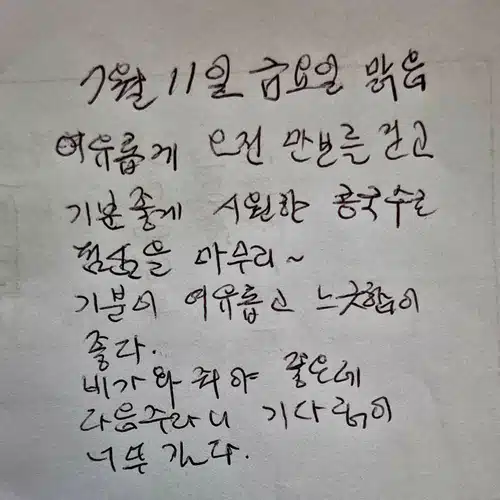 7월 11일 금요일 맑음
여유롭게 오전 만보를 걷고
기분좋게 시원한 콩국수로
점심을 마무리~
기분이 여유롭고 느긋함이
좋다.
비가 와 줘야 좋은데
다음주라니 기다림이
너무 길다.